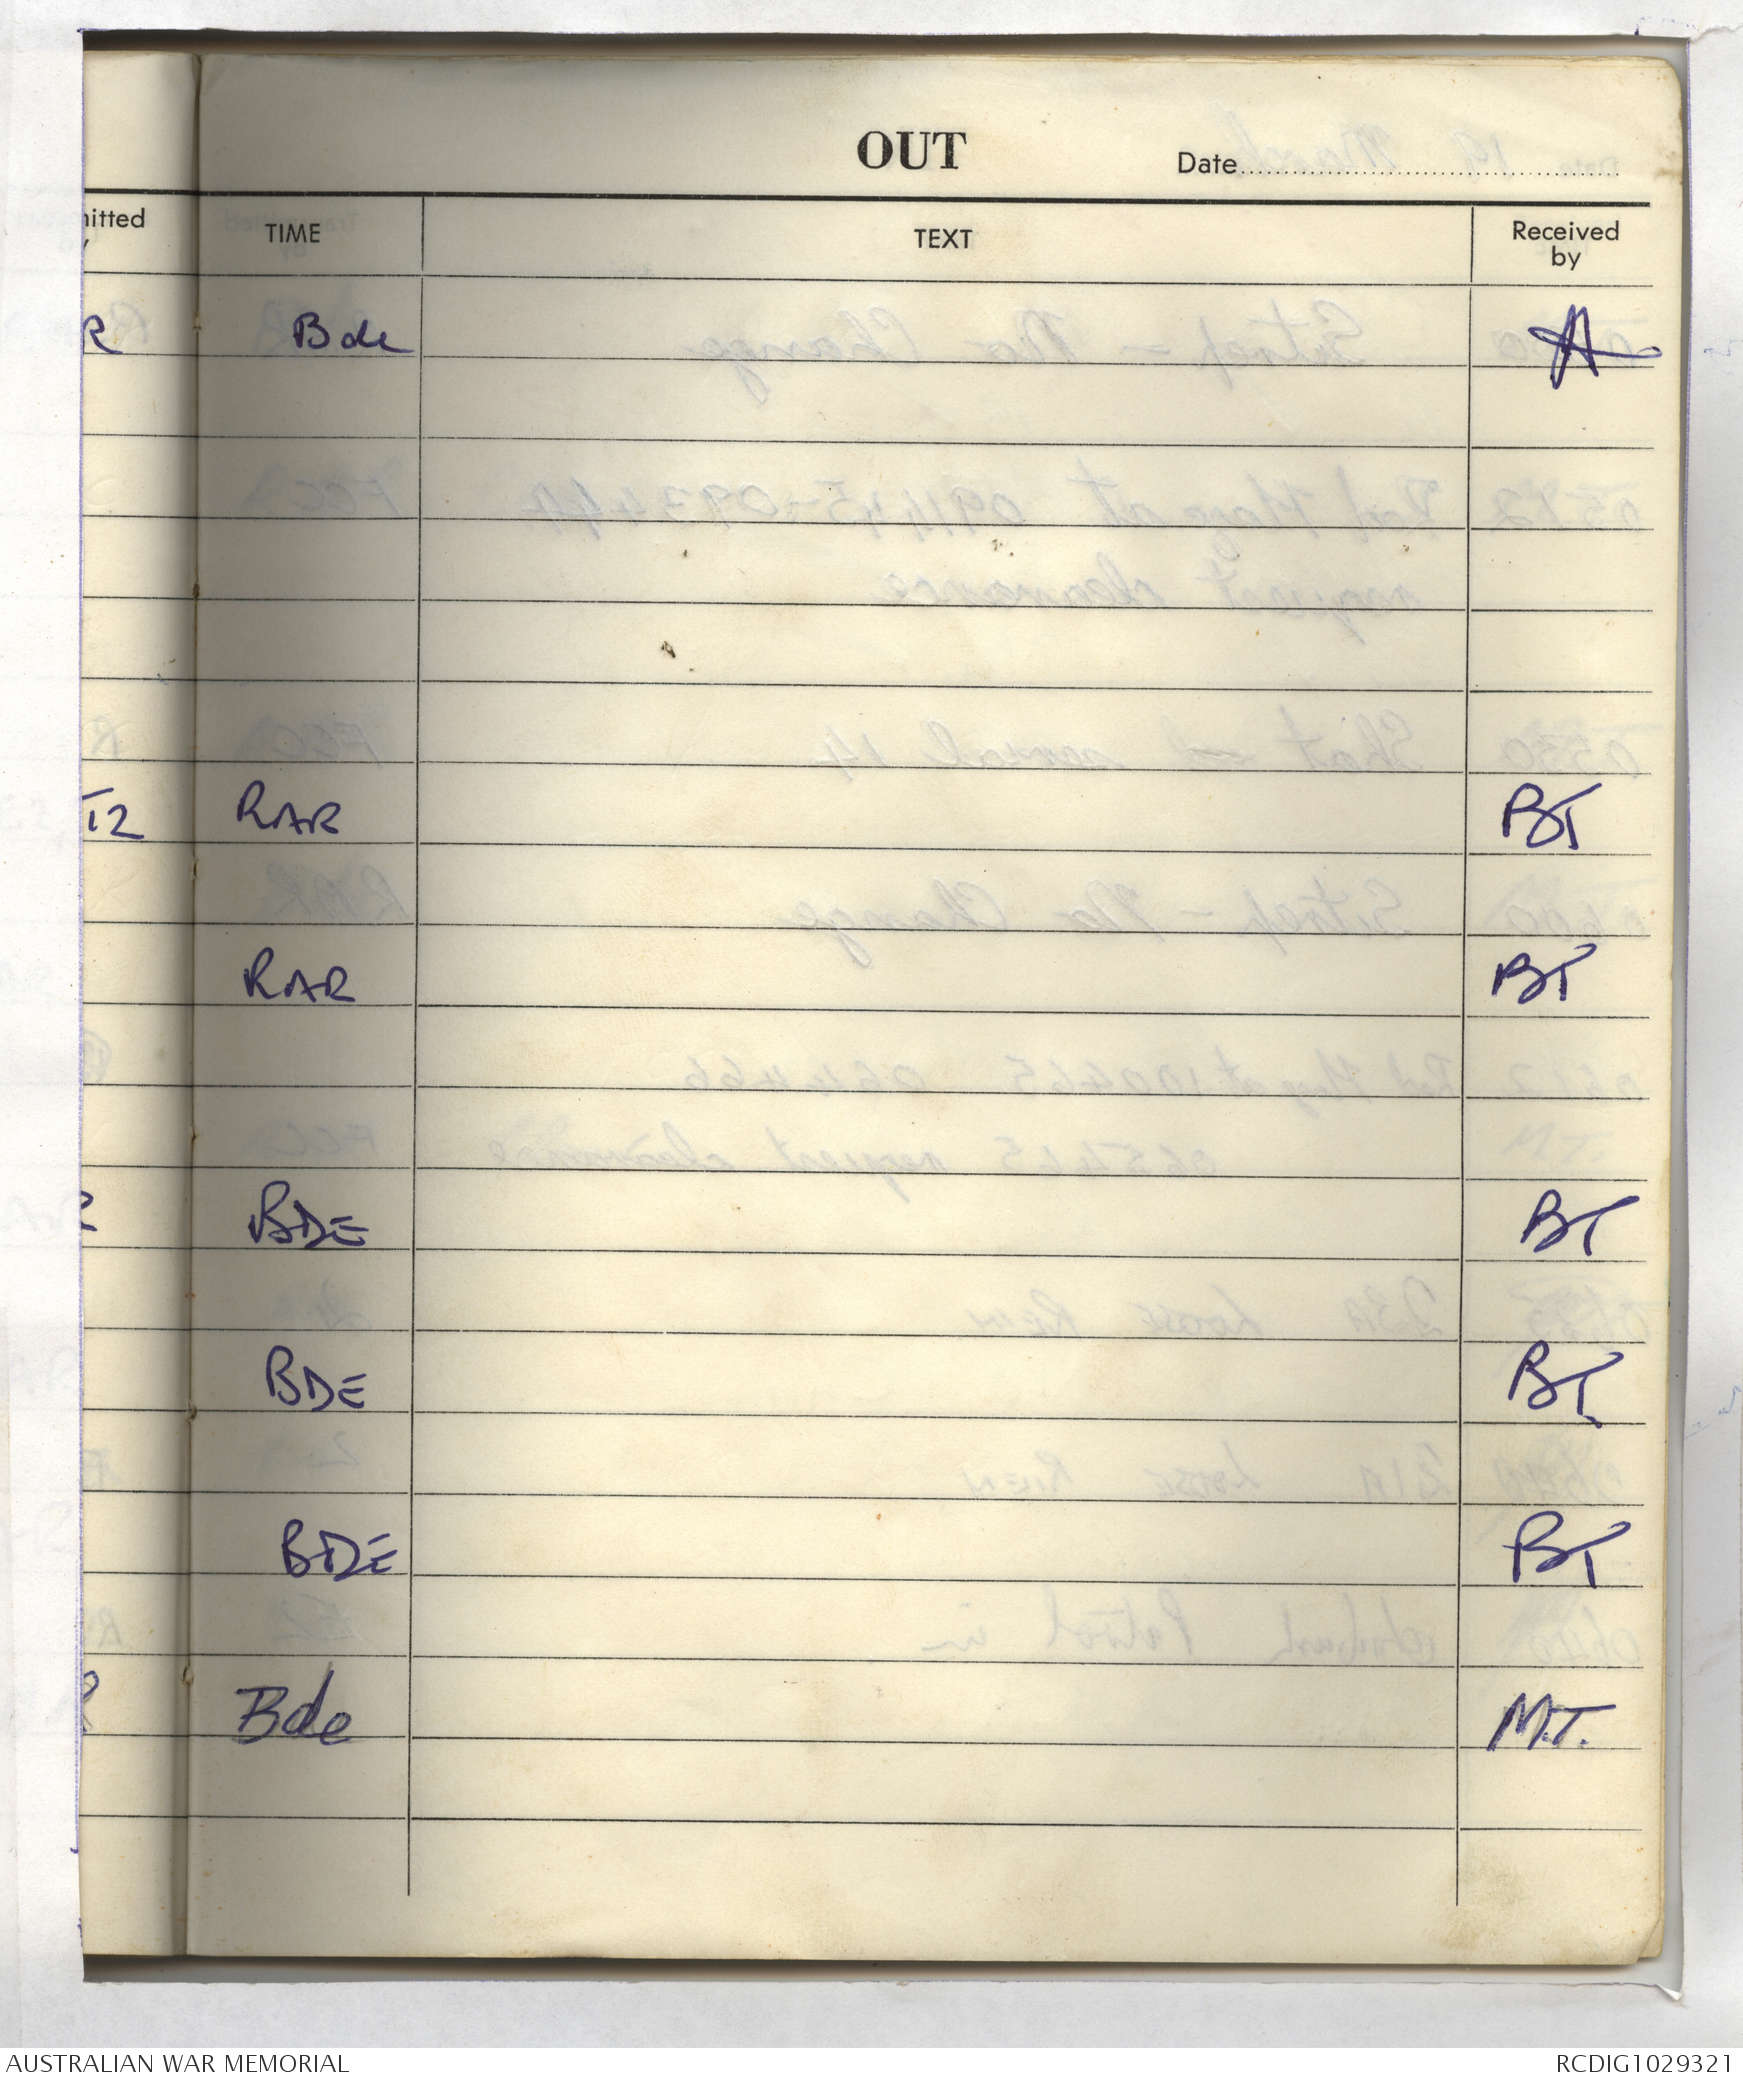 OUT
Date
TIME TEXT Received
by
R Bde A
T2 RAR BT
RAR BT
BDE BT
BDE BT
BDE BT
Bde M.T.
AUSTRALIAN WAR MEMORIAL RCDIG1029321